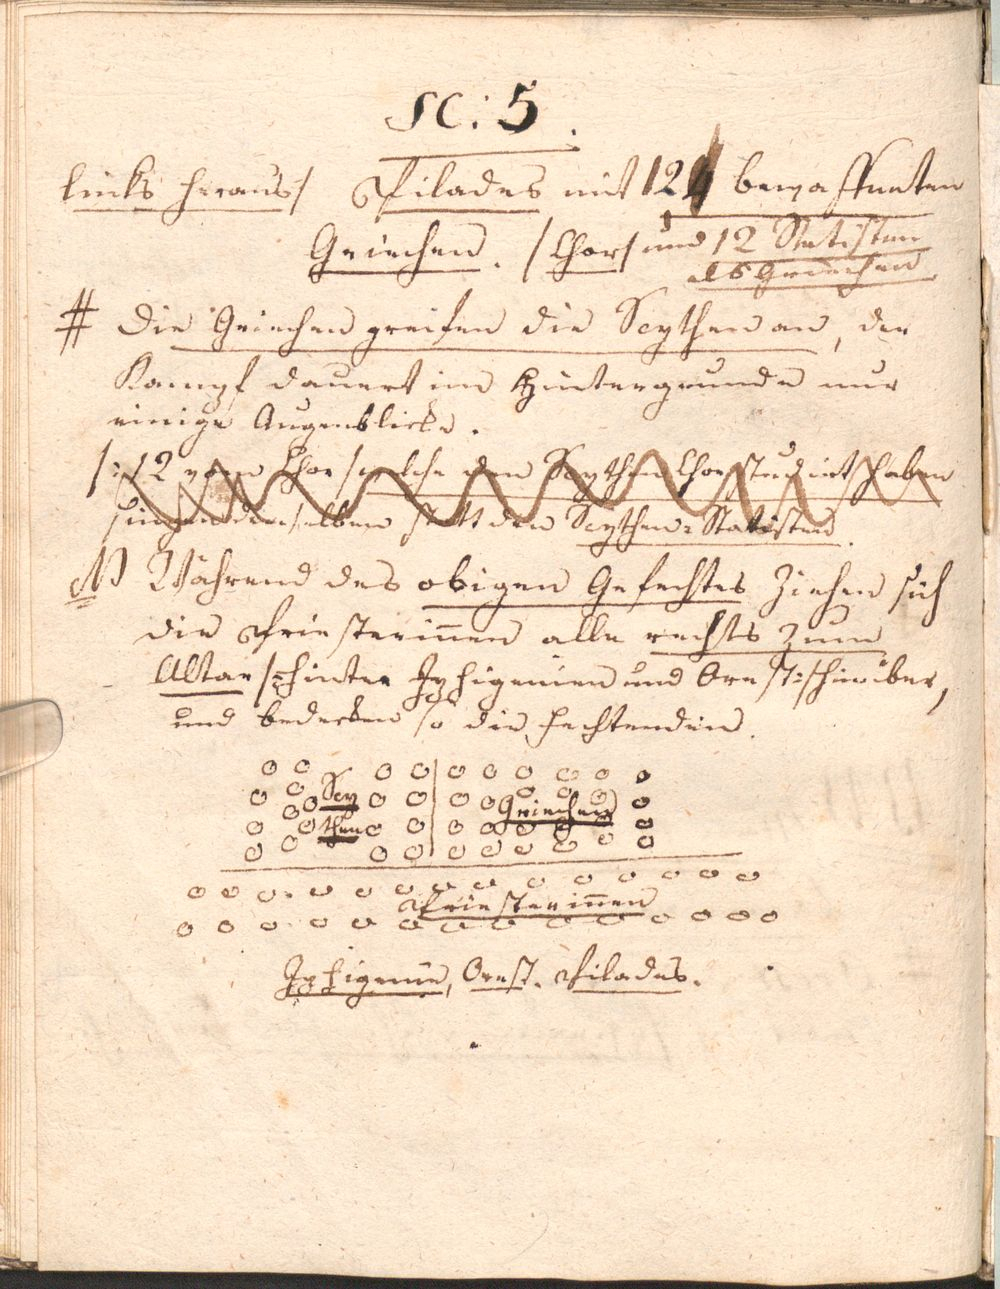 SC: 5.
links heraus/ Pilades mit 12 bewaffneten
Griechen. /Chor/ und 12 Statisten
als Griechen.
# Die Griechen greifen die Scythen an, der
Kampf dauert im Hintergrunde nur
einige Augenblicke.
/: 12 vom Chor welche den Scythen Chor studirt haben
singen denselben statt den Scythen-Statisten.
NB Während des obigen Gefechtes ziehen sich
die Priesterinnen alle rechts zum
Altar /:hinter Iphigenien und Orest:/ hinüber,
und bedecken so die Fechtenden.
Scy Griechen
then
Priesterinnen
Iphigenie, Orest. Pilades.